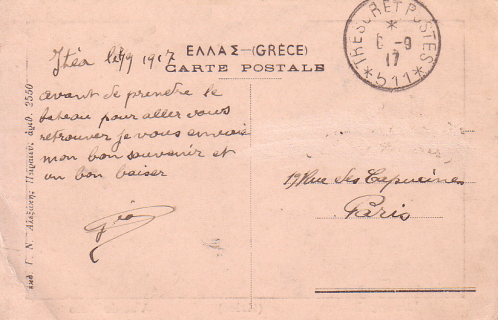 ΕΛΛΑΣ—(GRÈCE)
CARTE POSTALE
TRESOR ET POSTES
6 - 9
17
* 511 *
Itéa le 1917
avant de prendre le
bateau pour aller vous
retrouver je vous envoie
mon bon souvenir et
un bon baiser
Géo
19 Rue des Capucines
Paris
ἐκδ. Γ. Ν. Ἀλεξάκης Πειραιεύς ἀριθ. 2550